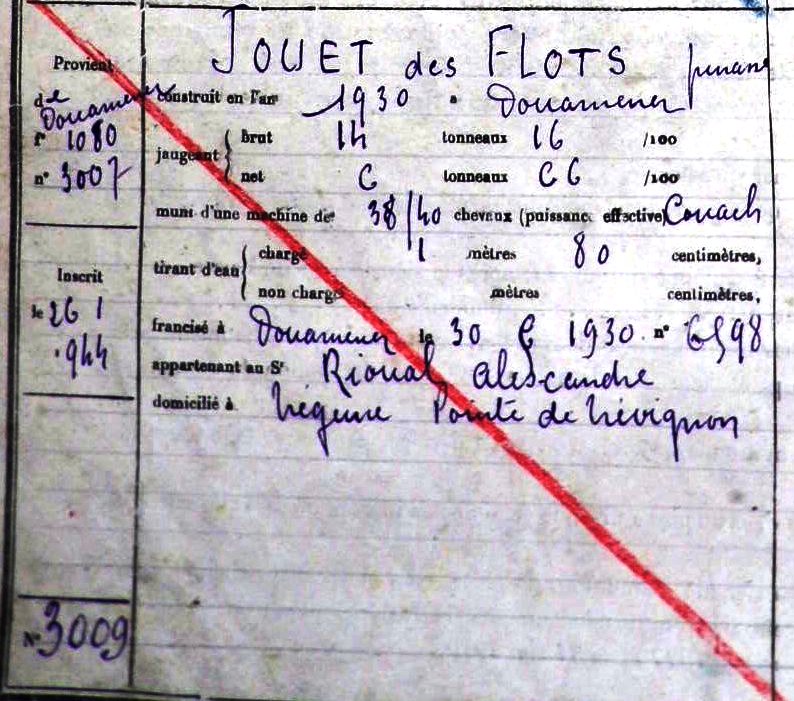 Provient
de Douarnenez
f° 1080
n° 3007
Inscrit
le 26 1
944
N° 3009
JOUET des FLOTS
construit en l'an 1930 a Douarnenez
jaugeant { brut 14 tonneaux 16 /100
net 6 tonneaux 66 /100
muni d'une machine de 38/40 chevaux (puissance effective) Couach
tirant d'eau { chargé 1 mètres 80 centimètres,
non chargé mètres centimètres,
francisé à Douarnenez le 30 6 1930 n°
appartenant au Sr Rioual Alescandre
domicilié à Trégunc Pointe de Trévignon